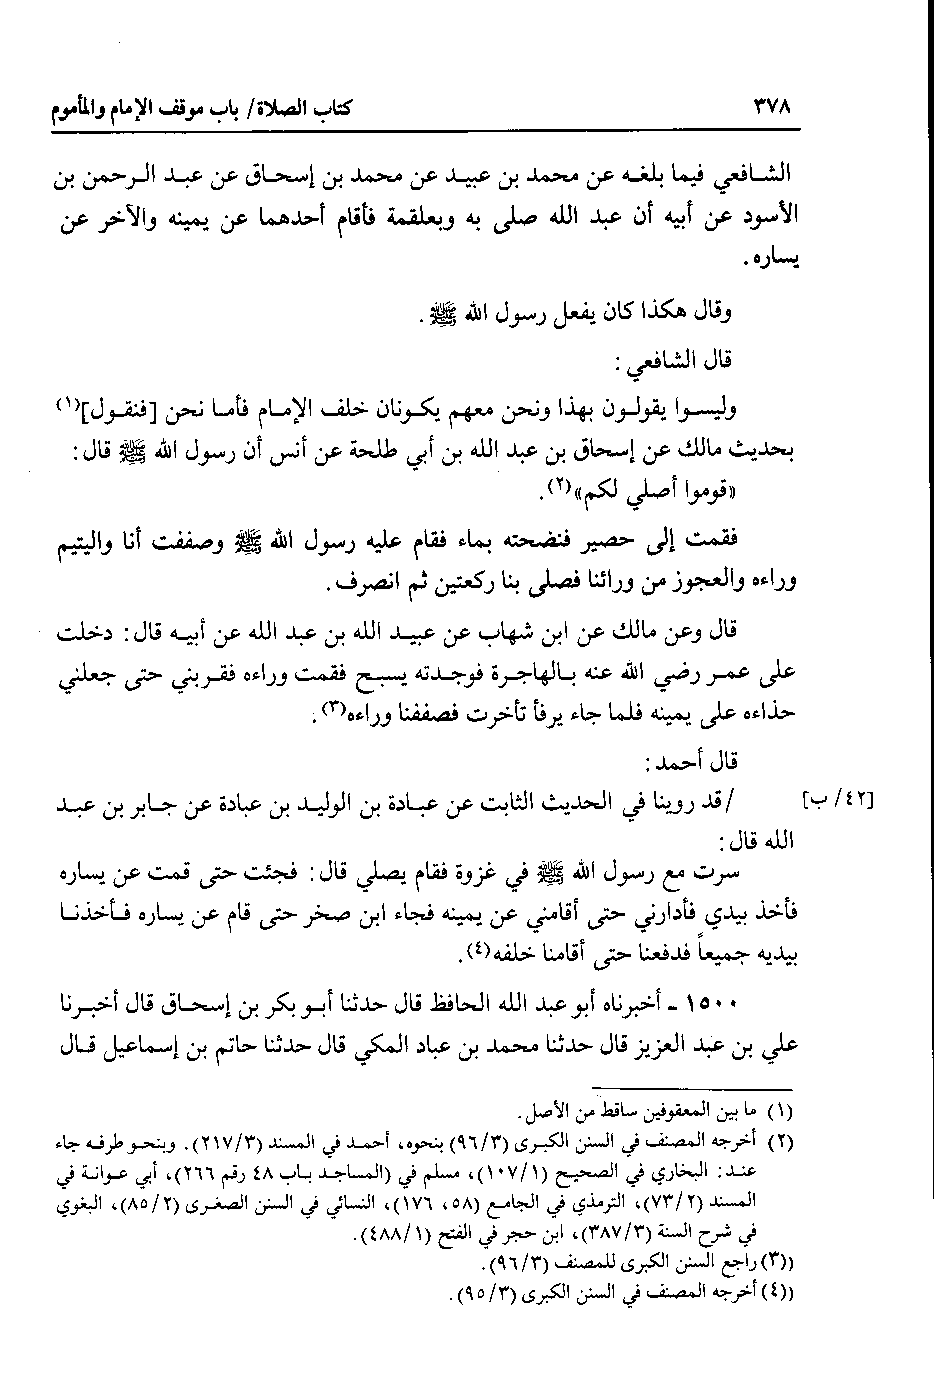 ٣٧٨ كتاب الصلاة/ باب موقف الإمام والمأموم
الشافعي فيما بلغه عن محمد بن عبيد عن محمد بن إسحاق عن عبد الرحمن بن
الأسود عن أبيه أن عبد الله صلى به وبعلقمة فأقام أحدهما عن يمينه والآخر عن
يساره.
وقال هكذا كان يفعل رسول الله ﷺ.
قال الشافعي:
وليسوا يقولون بهذا ونحن معهم يكونان خلف الإمام فأما نحن [فنقول](١)
بحديث مالك عن إسحاق بن عبد الله بن أبي طلحة عن أنس أن رسول الله ﷺ قال:
«قوموا أصلي لكم»(٢).
فقمت إلى حصير فنضحته بماء فقام عليه رسول الله ﷺ وصففت أنا واليتيم
وراءه والعجوز من ورائنا فصلى بنا ركعتين ثم انصرف.
قال وعن مالك عن ابن شهاب عن عبيد الله بن عبد الله عن أبيه قال: دخلت
على عمر رضي الله عنه بالهاجرة فوجدته يسبح فقمت وراءه فقربني حتى جعلني
حذاءه على يمينه فلما جاء يرفأ تأخرت فصففنا وراءه(٣).
قال أحمد:
[٤٢/ ب] /قد روينا في الحديث الثابت عن عبادة بن الوليد بن عبادة عن جابر بن عبد
الله قال:
سرت مع رسول الله ﷺ في غزوة فقام يصلي قال: فجئت حتى قمت عن يساره
فأخذ بيدي فأدارني حتى أقامني عن يمينه فجاء ابن صخر حتى قام عن يساره فأخذنا
بيديه جميعاً فدفعنا حتى أقامنا خلفه(٤).
١٥٠٠ - أخبرناه أبو عبد الله الحافظ قال حدثنا أبو بكر بن إسحاق قال أخبرنا
علي بن عبد العزيز قال حدثنا محمد بن عباد المكي قال حدثنا حاتم بن إسماعيل قال
(١) ما بين المعقوفين ساقط من الأصل.
(٢) أخرجه المصنف في السنن الكبرى (٩٦/٣) بنحوه، أحمد في المسند (٢١٧/٣). وبنحو طرفه جاء
عند: البخاري في الصحيح (١٠٧/١)، مسلم في (المساجد باب ٤٨ رقم ٢٦٦)، أبي عوانة في
المسند (٧٣/٢)، الترمذي في الجامع (٥٨، ١٧٦)، النسائي في السنن الصغرى (٨٥/٢)، البغوي
في شرح السنة (٣٨٧/٣)، ابن حجر في الفتح (٤٨٨/١).
((٣) راجع السنن الكبرى للمصنف (٩٦/٣).
((٤) أخرجه المصنف في السنن الكبرى (٩٥/٣).